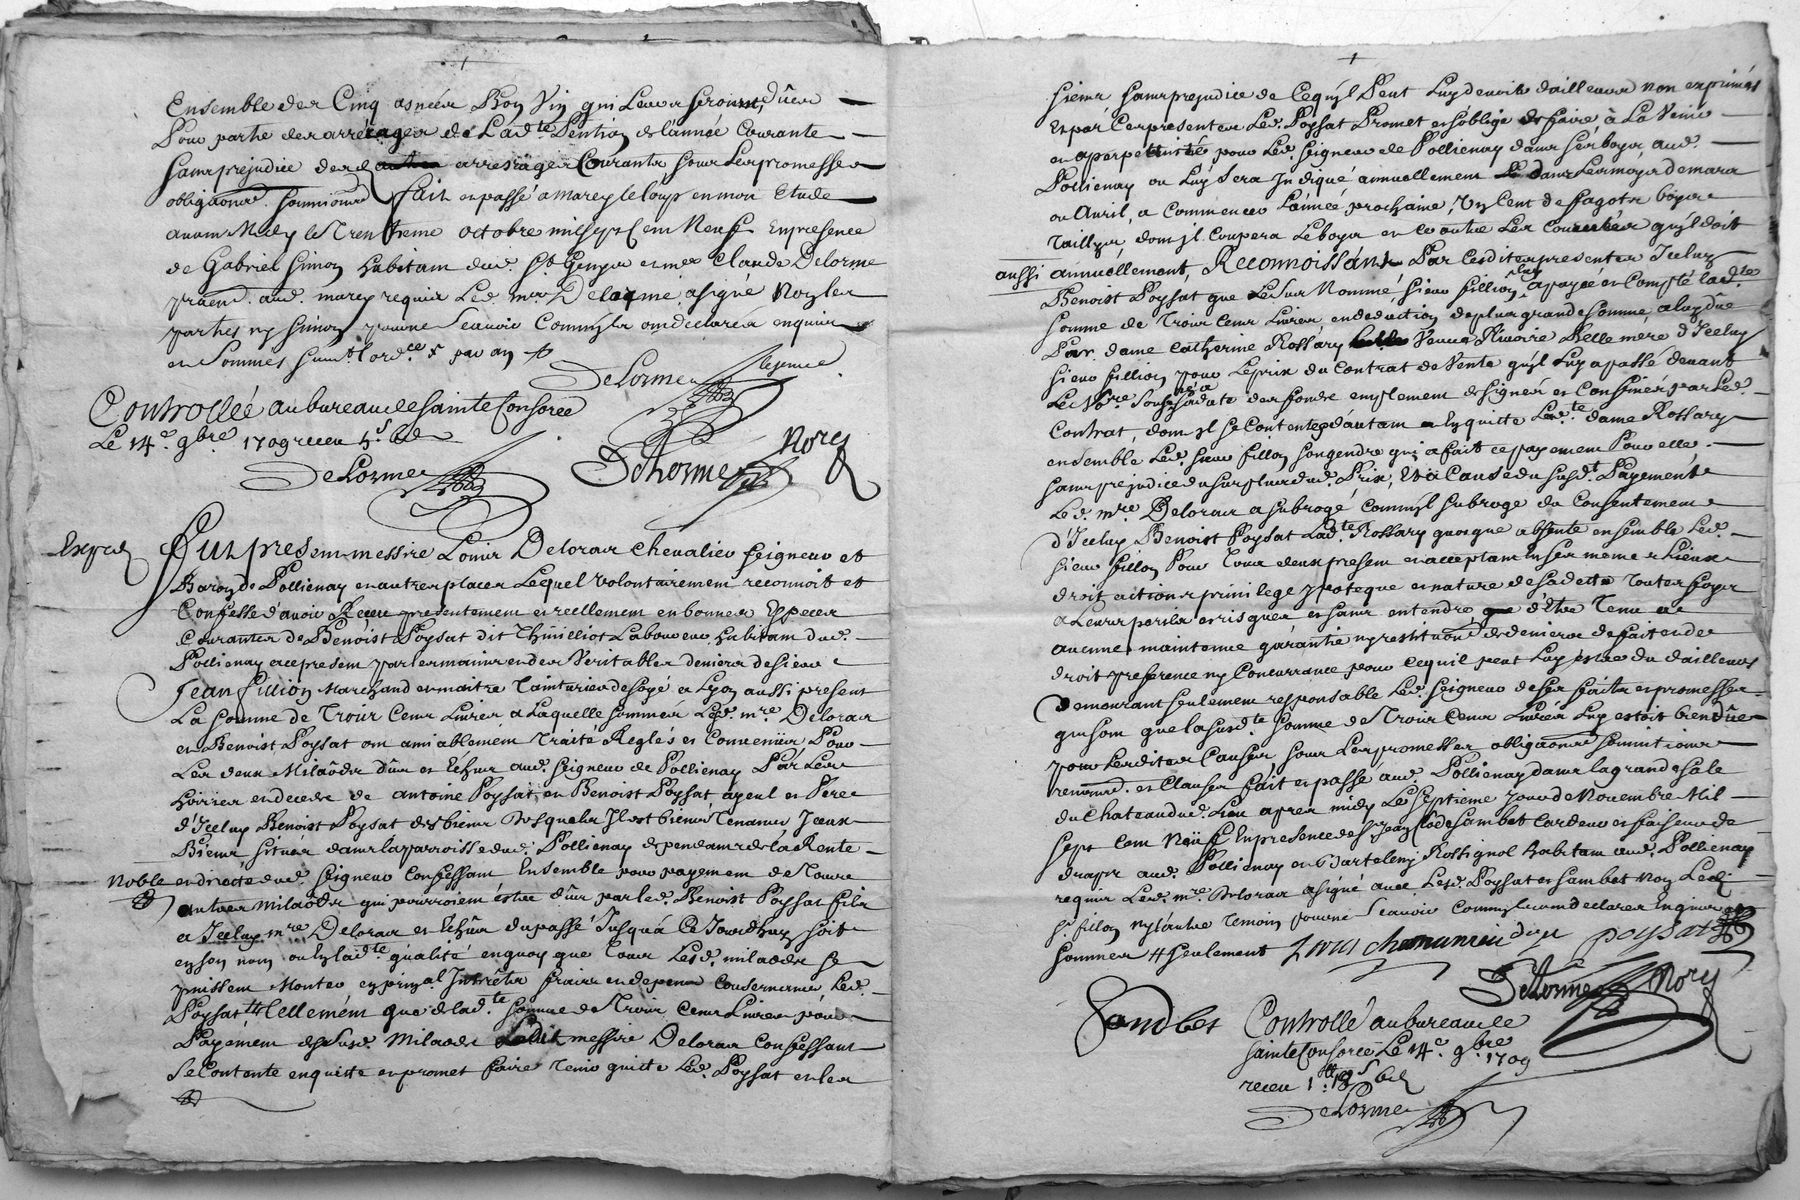 Ensemble des Cinq asnées Bon Vin qui Leurs seront dües
Pour partie des arrérages de Lad.te Pention de lannée Courante
sans préjudice des d arrerages Courants sous Les promesses
obligaōns soumions fait et passé a Marcy le loup en mon Etude
avant Midy le Trentieme octobre mil sept Cent Neuf En presence
de Gabriel Simon habitant dud. St Genys et me Claude Delorme
pratn. aud. marcy requis Led. mre Delorme a signé Non les
parties ny Simon pour ne Scavoir Comm'ils ont declarés enquis
et Sommés suivt. lordce
DeLorme
Controllée au bureau de Sainte Consorce
Le 14e 9bre 1709 receu 5s 6d
DeLorme
DeLorme Nore
Exped
Fut present messire Louis Deloras Chevalier seigneur et
Baron de Pollienay et autres places Lequel volontairement reconnoit et
Confesse d'avoir Receu presentement et reellement en bonnes Especes
Courantes de Benoist Poysat dit Thuilliot Laboureur habitant dud.
Pollienay acce present par les mains et des Veritables deniers de sieur
Jean fillion Marchand et maitre Tainturier de soye a Lyon aussi present
La somme de Trois Cent Livres a Laquelle somme Led. mre Deloras
et Benoist Poysat ont amiablement Traité Reglés et Convenüs Pour
Les deux Milaōds dûs et Echus aud. seigneur de Pollienay Par Les
hoiries et deceds de antoine Poysat et Benoist Poysat ayeul et Pere
d'Icelluy Benoist Poysat des biens desquels Il est bien Tenancier Iceux
Biens situés dans la parroisse dud. Pollienay dependants de la Rente
Noble et directe dud. seigneur Confessant Ensemble pour payement de Tous
autres milaōds qui pourroient éstre dûs par led. Benoist Poysat fils
a Icelluy mre Deloras et Echûs du passé Jusquá Ce Jourdhuy soit
en son nom ou En lad.te qualité en quoy que Tous Lesd. milaods se
puissent Monter en prinpal Interêts frais et depens Concernant Led.
Poysat Tellement que de lad.te somme de Trois Cent Livres pour
Payement desusd. Milaods Ledit messire Deloras Confessant
se Contente en quitte et promet faire Tenir quitte Led. Poysat et les
siens sans prejudice de Ce qu'il Peut Luy devoir dailleurs non exprimés
Et par Ces presentes Led. Poysat Promet et s'oblige de faire à La Venir
et a perpetuité pour Led. seigneur de Pollienay dans ses boys aud.
Pollienay ou Luy Sera Indiqué annuellement dans Les moys de mars
ou Avril, a Commencer Lánnée prochaine, Un Cent de fagots boys
Taillys, dont Il Coupera Le boys et ce outre Les Courvées qu'il doit
aussi annuellement, Reconnoissant Par Ces dites presentes Icelluy
Benoist Poysat que Le Sus Nommé sieur fillion luy a payée et Compté lad.te
somme de Trois Cent Livres en deduction de plus grande somme a luy due
Par dame Catherine Rossary Veuve Rivoire Bellemere d'Icelluy
sieur fillion pour Le prix du Contrat de Vente qu'il Luy a passé devant
Le No.re Soussigné a date des fonds emplement designés et Confinés par Led.
Contrat, dont Il se Contente dautant et En quitte Lad.te dame Rossary
ensemble Led. sieur fillion son gendre qui a fait ce payement Pour elle
sans prejudice du surplus dud. Prix, Et a Cause du susd.t Payement
Led. mre Deloras a subrogé Comm'il subroge du Consentement
d'Icelluy Benoist Poysat Lad.te Rossary quoique absente ensemble Led.
sieur fillion Pour Tous deux present et acceptant En ses memes Lieux
droit actions privilege ypoteque et nature de sa dette Toutes foys
a Leurs perils et risques et sans entendre d'Etre Tenu a
aucune maintenue garantie ny restitution de deniers de fait ni de
droit preference ny Concurrance pour ce quil peut Luy estre du dailleurs
Demeurant seulement responsable Led. seigneur de ses faits et promesses
qui sont que la susd.te somme de Trois Cent Livres Luy estoit bien Dûe
pour Les dites Causes, sous Les promesses obligaōns soumitions
renonc. et Clauses fait et passé aud. Pollienay dans la grande sale
du chateau dud. Lieu apres midy Le septieme jour de Novembre Mil
sept Cent Neuf En presence de Sr Jean Clode Sambet Cardeur et faiseur de
draps aud. Pollienay et Barteleny Rossignol habitant aud. Pollienay
requis Led. mre Deloras a signé avec Lesd. Poysat et sambet Non Led.
Sr fillon ny lautre Temoin pour ne Scavoir Comm'ils ont declares Enquis et
sommes seulement poysat
DeLorme Nore
Sandbet Controllé au bureau de
Sainte Consorce Le 14e 9bre 1709
receu
DeLorme